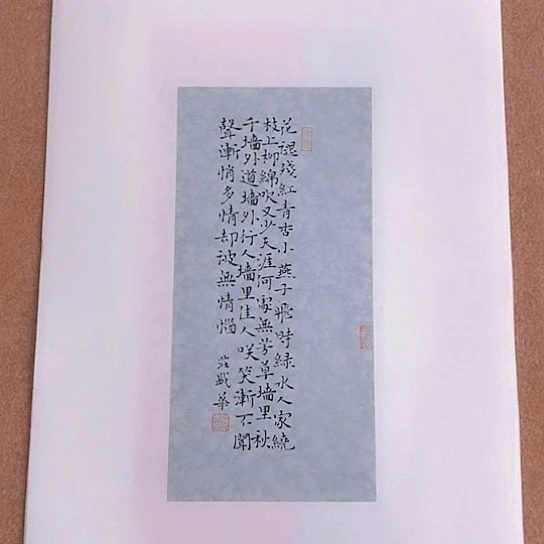 花褪殘紅青杏小燕子飛時綠水人家繞
枝上柳綿吹又少天涯何處無芳草墙里秋
千墙外道墙外行人墙里佳人咲笑漸不聞
聲漸悄多情却被無情惱